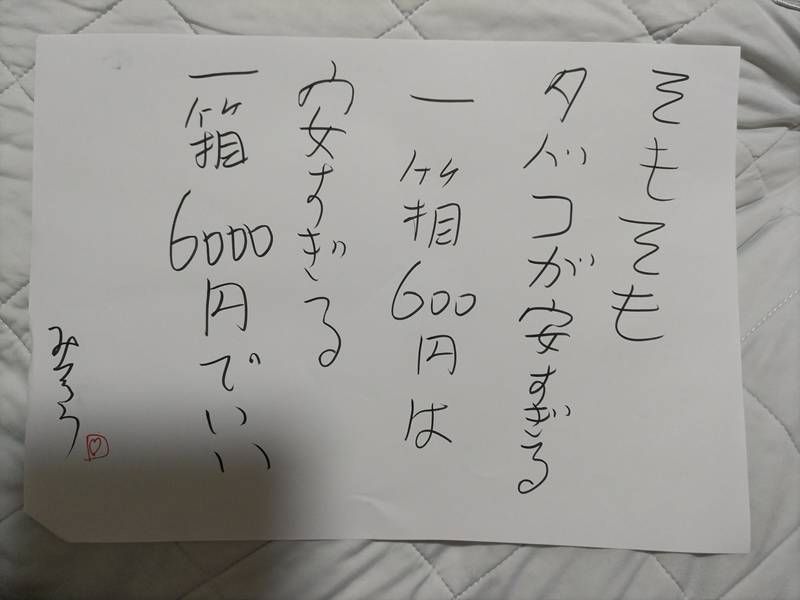 そもそも
タバコが安すぎる
一箱600円は
安すぎる
一箱6000円でいい
みろう